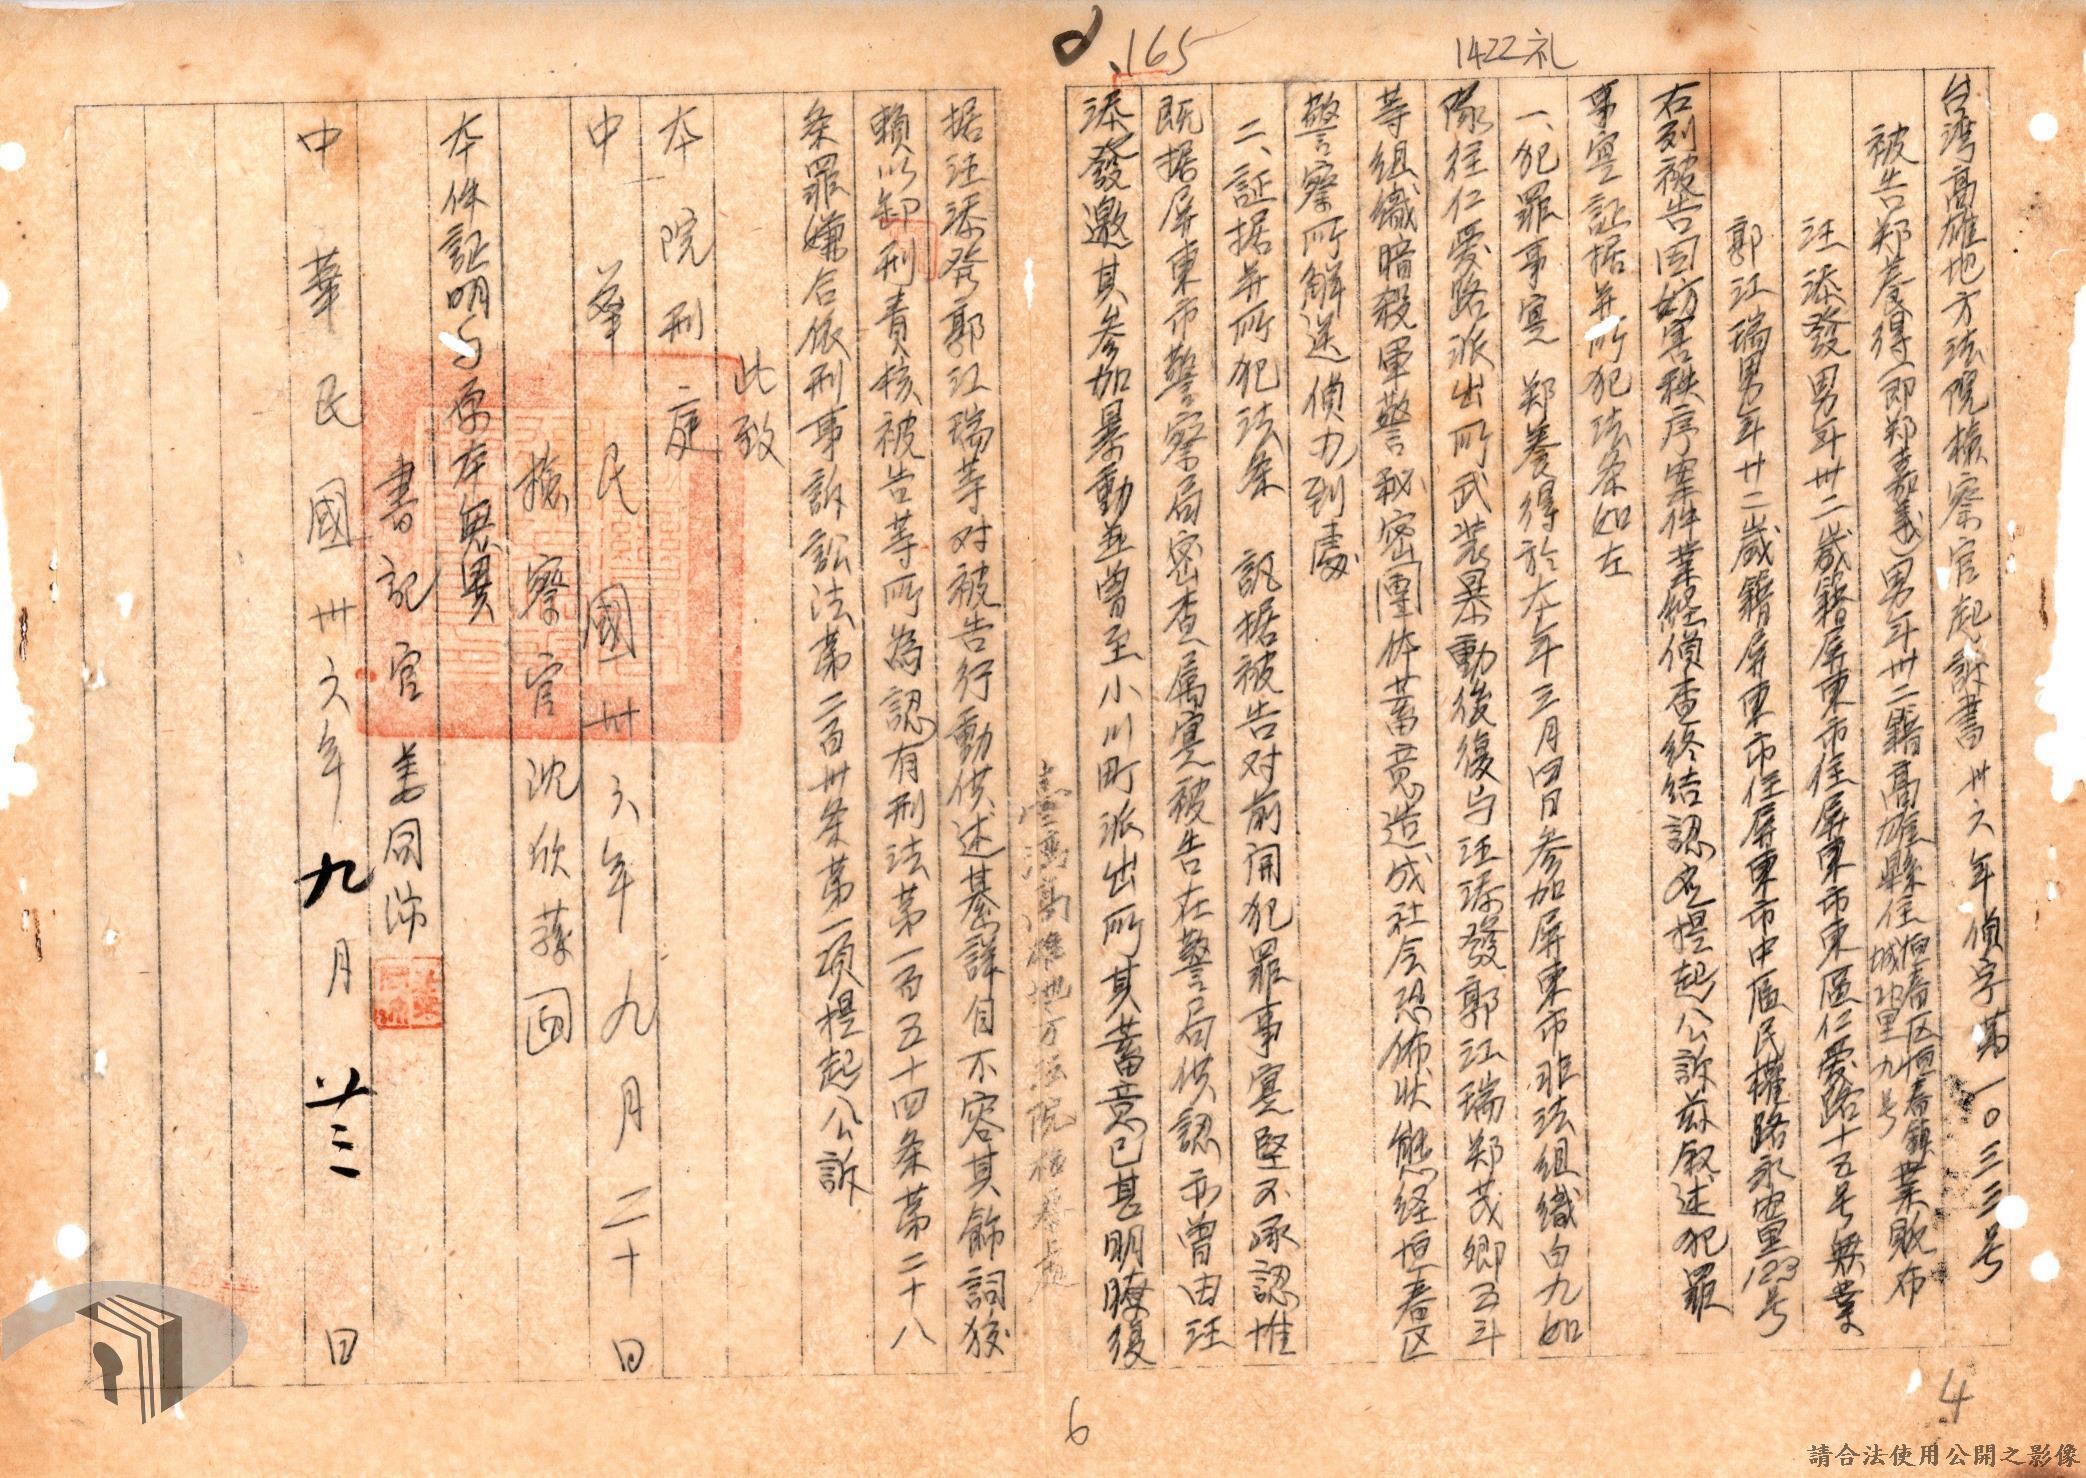 165
1422礼
台湾高雄地方法院檢察官起訴書 卅六年偵字第一〇三三号
被告郑養得(即郑嘉義)男年卅二籍高雄縣住恒春区恒春鎮城北里九号業販布
汪添發男年卅二歲籍屏東市住屏東市東區仁愛路十五号無業
郭江瑞男年廿二歲籍屏東市住屏東市中區民權路永安里123号
右列被告因妨害秩序案件業経偵查終結認应提起公訴茲叙述犯罪
事寔証据并所犯法条如左
一、犯罪事寔 郑養得於本年三月四日参加屏東市非法組織白九如
隊往仁愛路派出所武装暴動後復与汪添發郭江瑞郑茂卿五斗
等組織暗殺軍警秘密團体蓄意造成社会恐佈状態经恒春区
警察所解送偵办到處
二、証据并所犯法条 訊据被告对前開犯罪事寔堅不承認惟
既据屏東市警察局密查属寔被告在警局供認亦曾由汪
添發邀其参加暴動並曾至小川町派出所其蓄意已甚明瞭復
据汪添發郭江瑞等对被告行動供述綦詳自不容其飾詞狡
賴以卸刑責核被告等所為認有刑法第一百五十四条第二十八
条罪嫌合依刑事訴訟法第二百卅条第一項提起公訴
此致
本院刑庭
中華民國卅六年九月二十日
檢察官沈欣蓀
本件証明与原本無異
書記官姜同沛
中華民國卅六年九月廿三日
臺灣高雄地方法院檢察處
4
6
請合法使用公開之影像